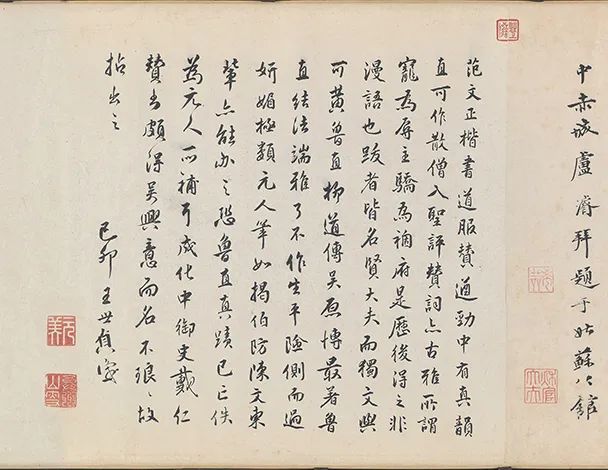 中赤城盧濬拜題于姑蘇公館
范文正楷書道服贊遒勁中有真韻
直可作散僧入聖評贊詞亦古雅所謂
寵為辱主驕為禍府是歷後得之非
漫語也跋者皆名賢大夫而獨文與
可黃魯直柳道傳吳原博最著魯
直結法端雅了不作生平險側而過
妍媚極類元人筆如揭伯防陳文東
輩亦能办之恐魯直真蹟已亡佚
為元人所補耳成化中御史戴仁
贊出頗得吳興意而名不琅琅故
拈出之
己卯王世貞識
元美